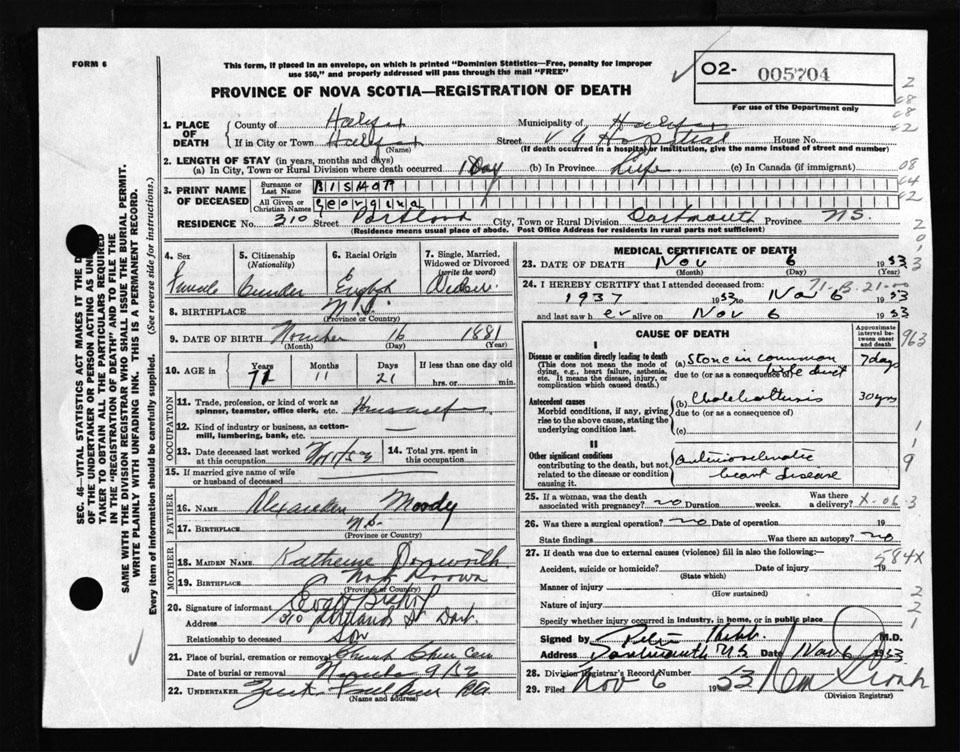 FORM 6
This form, if placed in an envelope, on which is printed "Dominion Statistics—Free, penalty for improper
use $50," and properly addressed will pass through the mail "FREE"
02- 005704
For use of the Department only
PROVINCE OF NOVA SCOTIA—REGISTRATION OF DEATH
1. PLACE OF DEATH
County of Halifax Municipality of Halifax
If in City or Town Halifax Street V G Hospital House No.
(Name) (If death occurred in a hospital or institution, give the name instead of street and number)
2. LENGTH OF STAY (in years, months and days)
(a) In City, Town or Rural Division where death occurred 1 Day (b) In Province Life (c) In Canada (if immigrant)
3. PRINT NAME OF DECEASED
Surname or Last Name BISHOP
All Given or Christian Names Georgina
RESIDENCE No. 310 Street Portland City, Town or Rural Division Dartmouth Province N.S.
(Residence means usual place of abode. Post Office Address for residents in rural parts not sufficient)
4. Sex Female
5. Citizenship (Nationality)
6. Racial Origin English
7. Single, Married, Widowed or Divorced (write the word)
8. BIRTHPLACE N.S.
(Province or Country)
9. DATE OF BIRTH November 16 1881
(Month) (Day) (Year)
10. AGE in Years 71 Months 11 Days 21 If less than one day old hrs. or min.
OCCUPATION
11. Trade, profession, or kind of work as spinner, teamster, office clerk, etc.
12. Kind of industry or business, as cotton-mill, lumbering, bank, etc. —
13. Date deceased last worked at this occupation
14. Total yrs. spent in this occupation
15. If married give name of wife or husband of deceased
FATHER
16. NAME Alexander Moody
17. BIRTHPLACE N.S.
(Province or Country)
MOTHER
18. MAIDEN NAME Katherine
19. BIRTHPLACE Not Known
(Province or Country)
20. Signature of informant
Address 310 Portland St Dart.
Relationship to deceased son
21. Place of burial, cremation or removal
Date of burial or removal
22. UNDERTAKER
(Name and Address)
MEDICAL CERTIFICATE OF DEATH
23. DATE OF DEATH Nov 6 1953
(Month) (Day) (Year)
71-B-21-00
24. I HEREBY CERTIFY that I attended deceased from:
1937 1953 to Nov 6 1953
and last saw her alive on Nov 6 1953
CAUSE OF DEATH
Approximate interval between onset and death
I
Disease or condition directly leading to death
(This does not mean the mode of dying, e.g., heart failure, asthenia, etc. It means the disease, injury, or complication which caused death.)
(a) Stone in common bile duct 7 days
due to (or as a consequence of)
Antecedent causes
Morbid conditions, if any, giving rise to the above cause, stating the underlying condition last.
(b) Cholelithiasis 30 yrs
due to (or as a consequence of)
(c)
II
Other significant conditions
contributing to the death, but not related to the disease or condition causing it.
Arteriosclerotic heart disease
25. If a woman, was the death associated with pregnancy? no Duration weeks. Was there a delivery?
26. Was there a surgical operation? no Date of operation 19
State findings Was there an autopsy? no
27. If death was due to external causes (violence) fill in also the following:—
Accident, suicide or homicide? Date of injury 19
(State which)
584X
Manner of injury
(How sustained)
Nature of injury
Specify whether injury occurred in industry, in home, or in public place
Signed by M.D.
Address Dartmouth N S Date Nov 6 1953
28. Division Registrar's Record Number
29. Filed Nov 6 1953
(Division Registrar)
SEC. 46—VITAL STATISTICS ACT MAKES IT THE D
OF THE UNDERTAKER OR PERSON ACTING AS UND
TAKER TO OBTAIN ALL THE PARTICULARS REQUIRED
IN THE "REGISTRATION OF DEATH" AND TO FILE THE
SAME WITH THE DIVISION REGISTRAR WHO SHALL ISSUE THE BURIAL PERMIT.
WRITE PLAINLY WITH UNFADING INK. THIS IS A PERMANENT RECORD.
Every item of information should be carefully supplied. (See reverse side for instructions.)